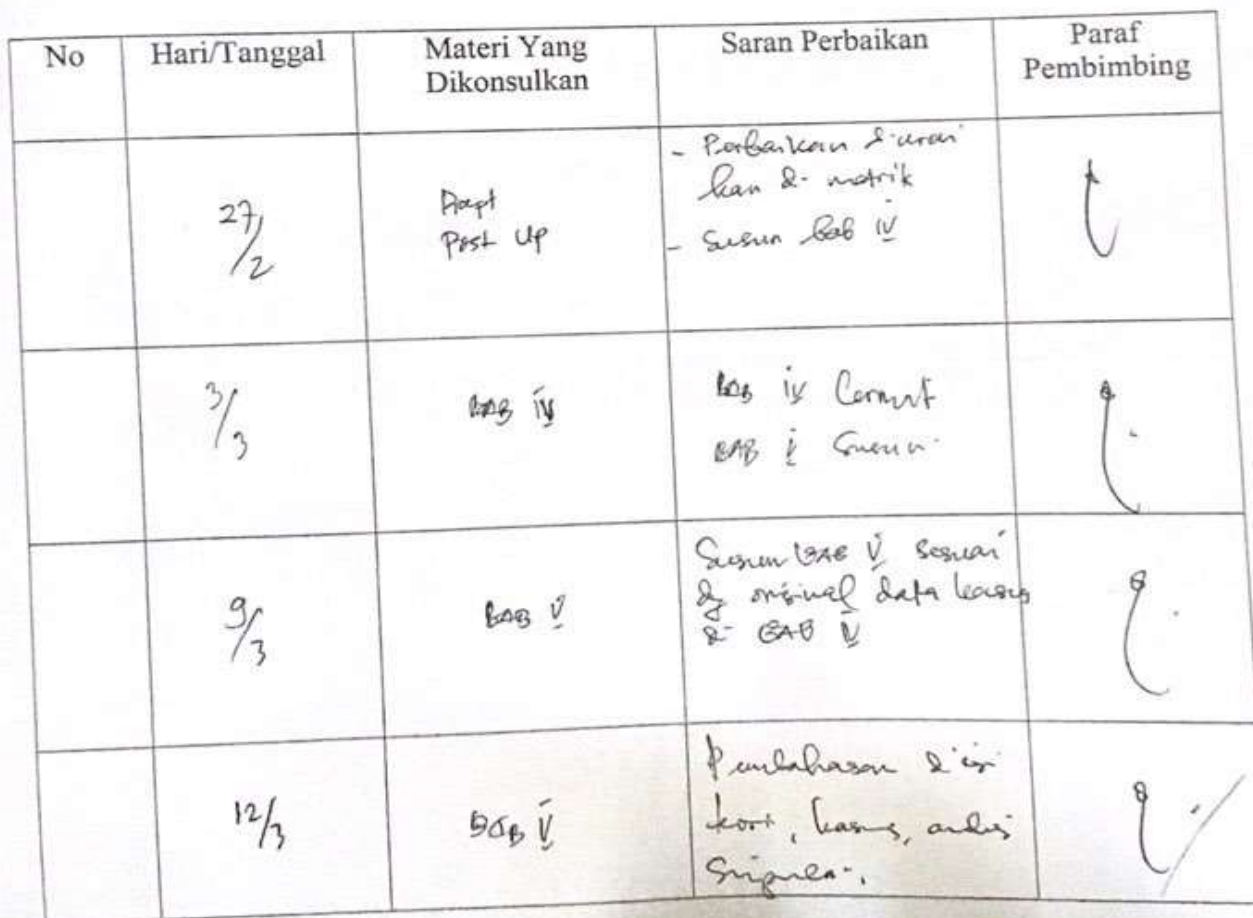 No Hari/Tanggal Materi Yang Dikonsulkan Saran Perbaikan Paraf Pembimbing
27/2
Post Up
- Perbaikan diurai
kan di matrik
- Susun bab IV
3/3
BAB IV
BAB IV Cermat
BAB V Susun
9/3
BAB V
Susun BAB V sesuai
dg original data kasus
di BAB IV
12/3
BAB V
Pembahasan diisi
teori, kasus, analisis